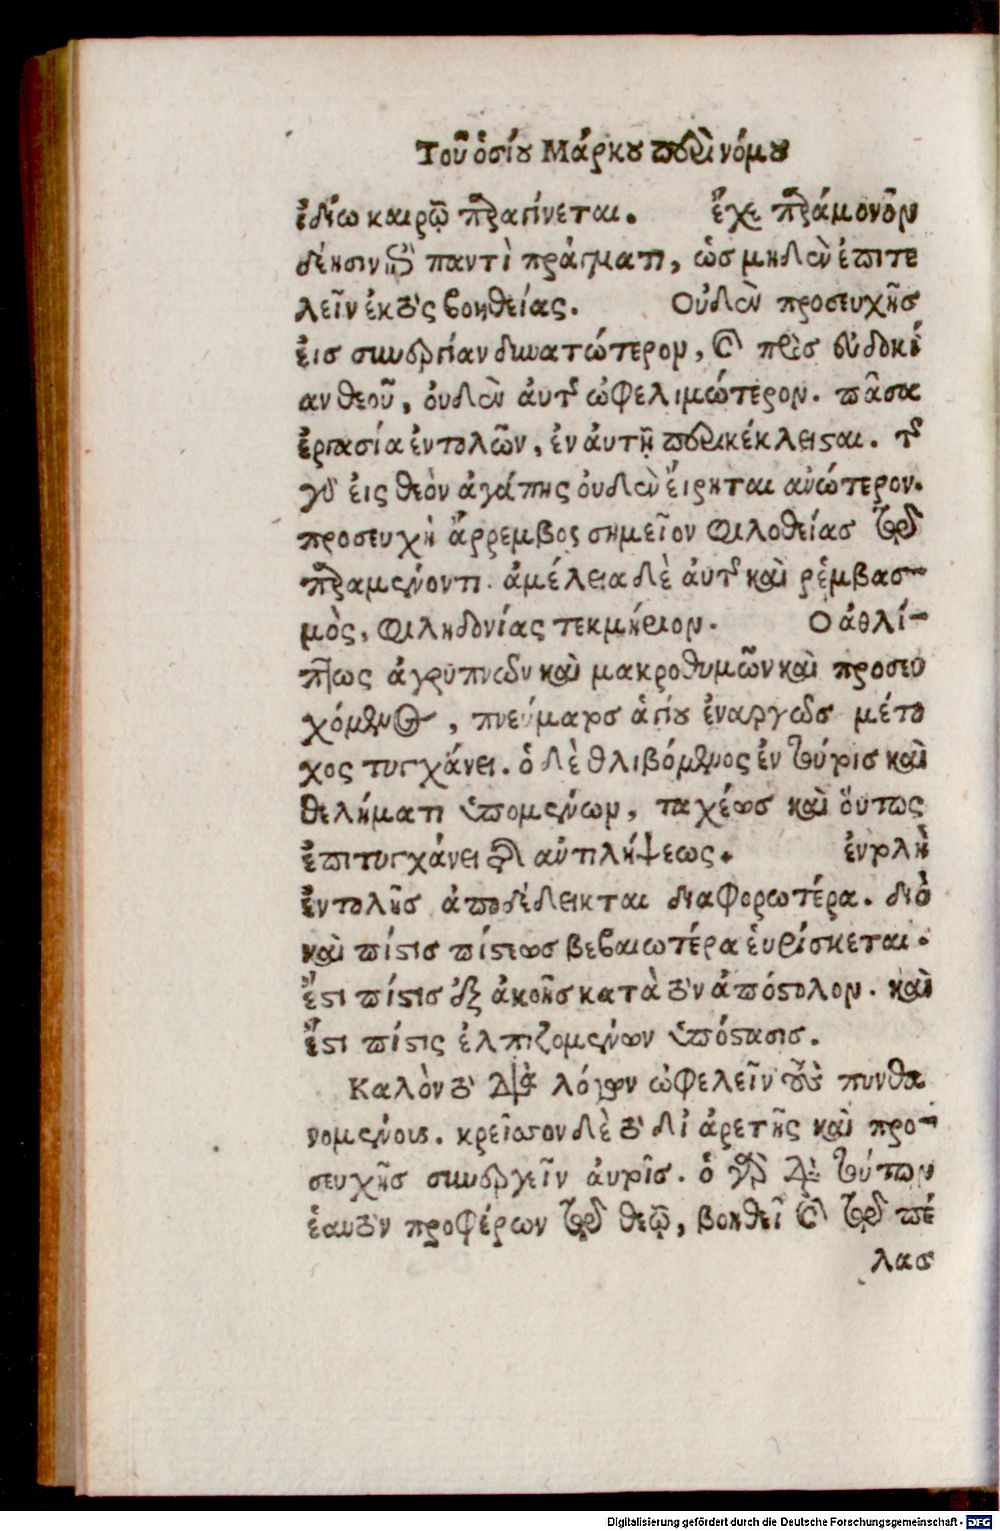 Τοῦ ὁσίου Μάρκου περὶ νόμου
ἰδίω καιρῷ παραγίνεται. ἔχε παράμονον
δέησιν ἐπὶ παντὶ πράγματι, ὡς μηδὲν ἐπιτε
λεῖν ἐκτὸς βοηθείας. Οὐδὲν προσευχῆς
εἰς συνεργίαν δυνατώτερον, καὶ πρὸς εὐδοκί
αν θεοῦ, οὐδὲν αὐτῆς ὠφελιμώτερον. πᾶσα
ἐργασία ἐντολῶν, ἐν αὐτῇ περικέκλεισται. τῆς
γὰρ εἰς θεὸν ἀγάπης οὐδὲν εἴρηται ἀνώτερον.
προσευχὴ ἄρρεμβος σημεῖον φιλοθείας τῷ
παραμένοντι. ἀμέλεια δὲ αὐτῆς καὶ ῥέμβασ-
μὸς, φιληδονίας τεκμήριον. Ο ἀθλί-
πτως ἀγρυπνῶν καὶ μακροθυμῶν καὶ προσευ
χόμενος, πνεύματος ἁγίου ἐναργῶς μέτο
χος τυγχάνει. ὁ δὲ θλιβόμενος ἐν τούτοις καὶ
θελήματι ὑπομένων, ταχέως καὶ οὕτως
ἐπιτυγχάνει τῆς ἀντιλήψεως. ἐντολὴ
ἐντολῆς ἀποδέδεικται διαφορωτέρα. διὸ
καὶ πίστις πίστεως βεβαιωτέρα εὑρίσκεται.
ἔστι πίστις ἐξ ἀκοῆς κατὰ τὸν ἀπόστολον. καὶ
ἔστι πίστις ἐλπιζομένων ὑπόστασις.
Καλὸν τὸ διὰ λόγων ὠφελεῖν τοὺς πυνθα
νομένους. κρεῖσσον δὲ τὸ δι ἀρετῆς καὶ προ-
σευχῆς συνεργεῖν αὐτοῖς. ὁ γὰρ διὰ τούτων
ἑαυτὸν προφέρων τῷ θεῷ, βοηθεῖ καὶ τῷ πέ
λας
Digitalisierung gefördert durch die Deutsche Forschungsgemeinschaft - DFG